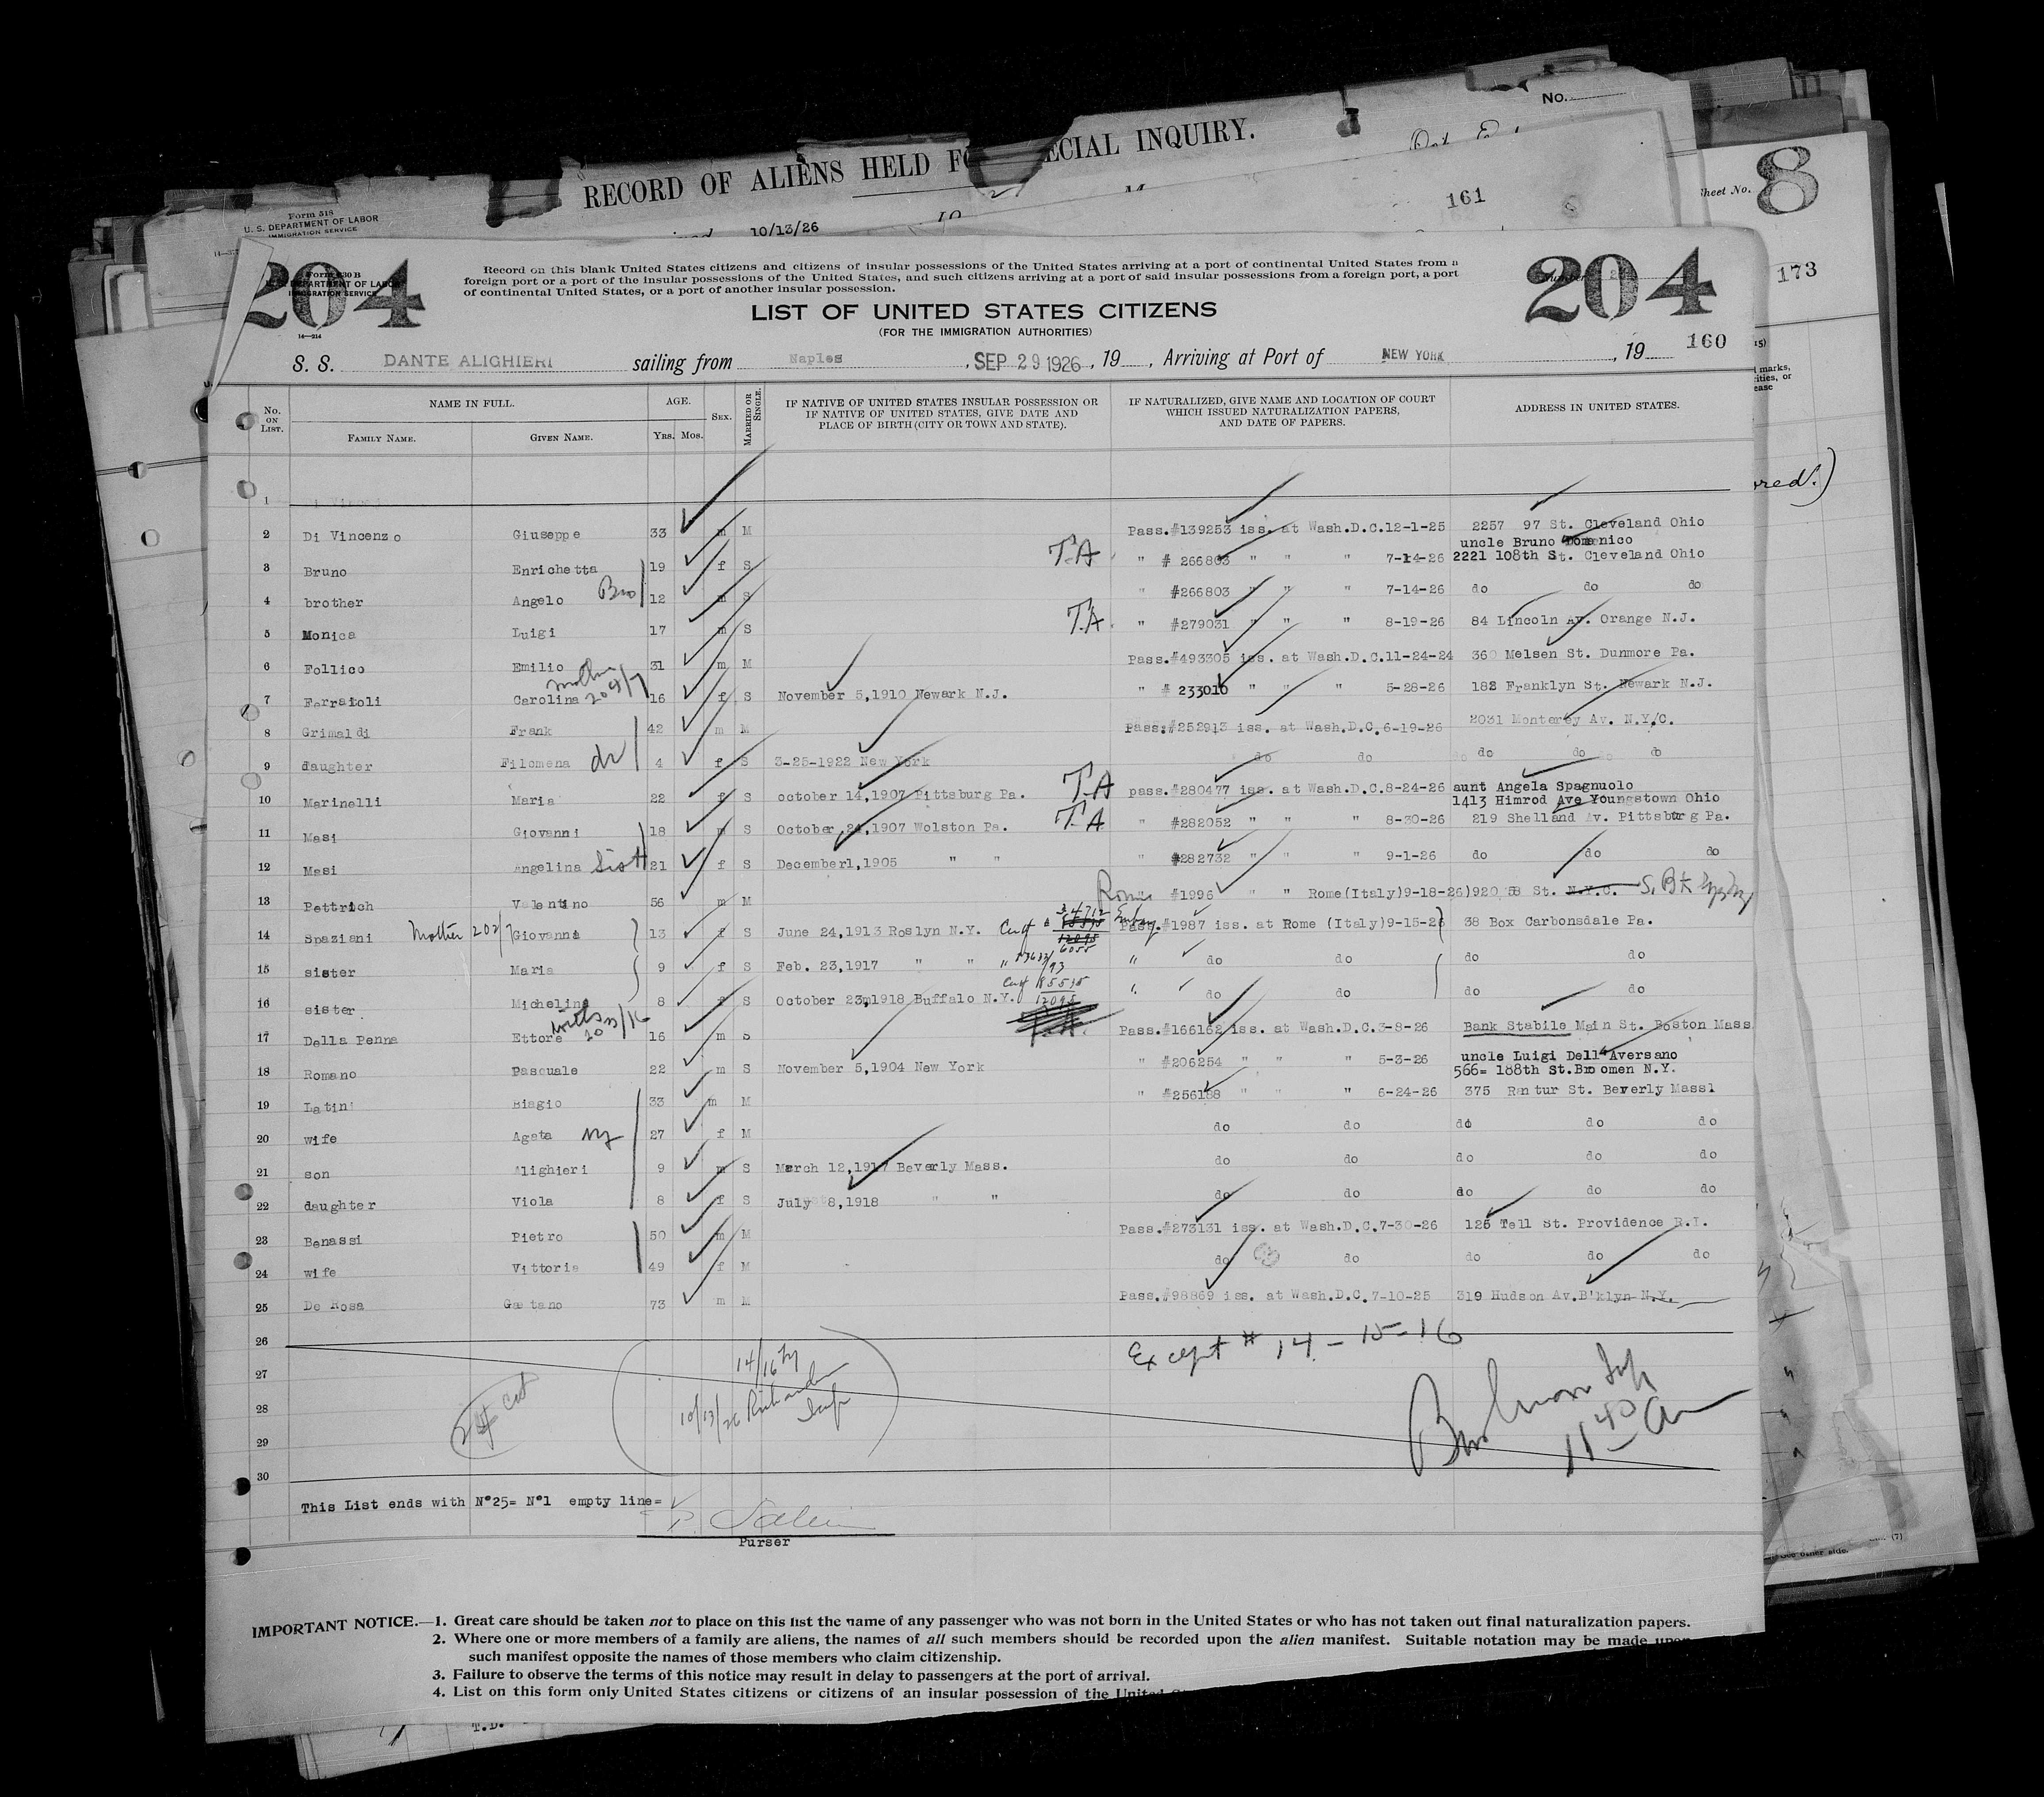 No.
RECORD OF ALIENS HELD FOR SPECIAL INQUIRY.
Form 518
U. S. DEPARTMENT OF LABOR
IMMIGRATION SERVICE
10/13/26
161
Sheet No. 8
173
204 204
Form 630 B
U. S. DEPARTMENT OF LABOR
IMMIGRATION SERVICE
14—214
Record on this blank United States citizens and citizens of insular possessions of the United States arriving at a port of continental United States from a
foreign port or a port of the insular possessions of the United States, and such citizens arriving at a port of said insular possessions from a foreign port, a port
of continental United States, or a port of another insular possession.
LIST OF UNITED STATES CITIZENS
(FOR THE IMMIGRATION AUTHORITIES)
160
S. S. DANTE ALIGHIERI sailing from Naples, SEP 29 1926, 19 , Arriving at Port of NEW YORK, 19
No. ON LIST. NAME IN FULL. AGE. SEX. MARRIED OR SINGLE. IF NATIVE OF UNITED STATES INSULAR POSSESSION OR IF NATIVE OF UNITED STATES, GIVE DATE AND PLACE OF BIRTH (CITY OR TOWN AND STATE). IF NATURALIZED, GIVE NAME AND LOCATION OF COURT WHICH ISSUED NATURALIZATION PAPERS, AND DATE OF PAPERS. ADDRESS IN UNITED STATES.
FAMILY NAME. GIVEN NAME. YRS. MOS.
1
2 Di Vincenzo Giuseppe 33 m M Pass.#139253 iss. at Wash.D.C.12-1-25 2257 97 St. Cleveland Ohio
uncle Bruno Domenico
3 Bruno Enrichetta 19 f S T.A " # 266803 " " " 7-14-26 2221 108th St. Cleveland Ohio
4 brother Angelo Bro 12 m S " #266803 " " " 7-14-26 do do do
5 Monica Luigi 17 m S T.A. " #279031 " " " 8-19-26 84 Lincoln Av. Orange N.J.
6 Follico Emilio 31 m M Pass.#493305 iss. at Wash.D.C.11-24-24 360 Melsen St. Dunmore Pa.
7 Ferraioli Carolina mother 204/7 16 f S November 5,1910 Newark N.J. " # 233010 " " " 5-28-26 182 Franklyn St. Newark N.J.
8 Grimaldi Frank 42 m M Pass.#252913 iss. at Wash.D.C.6-19-26 2031 Monterey Av. N.Y.C.
9 daughter Filomena 4 f S 3-25-1922 New York do do do do do
10 Marinelli Maria 22 f S october 14,1907 Pittsburg Pa. T.A pass.#280477 iss. at Wash.D.C.8-24-26 aunt Angela Spagnuolo
1413 Himrod Ave Youngstown Ohio
11 Masi Giovanni 18 m S October,24,1907 Wolston Pa. T.A. " #282052 " " " 8-30-26 219 Shelland Av. Pittsburg Pa.
12 Masi Angelina Sist 21 f S December1,1905 " " " #282732 " " " 9-1-26 do do do
13 Pettrich Valentino 56 m M #1996 " " Rome(Italy)9-18-26)920 58 St. N.Y.C.
14 Spaziani Mother Giovanna 13 f S June 24,1913 Roslyn N.Y. Pass.#1987 iss. at Rome (Italy)9-15-26 38 Box Carbonsdale Pa.
15 sister Maria 9 f S Feb. 23,1917 " " " do do do do
16 sister Michelina 8 f S October 23m1918 Buffalo N.Y. " do do do do
17 Della Penna Ettore 16 m S Pass.#166162 iss. at Wash.D.C.3-8-26 Bank Stabile Main St. Boston Mass
18 Romano Pascuale 22 m S November 5,1904 New York " #206254 " " " 5-3-26 uncle Luigi Dell'Aversano
566= 188th St.Broomen N.Y.
19 Latini Biagio 33 m M " #256188 " " " 6-24-26 375 Rantur St. Beverly Massl
20 wife Agata 27 f M do do do do do
21 son Alighieri 9 m S March 12,1917 Beverly Mass. do do do do do
22 daughter Viola 8 f S July 8,1918 " " do do do do do
23 Benassi Pietro 50 m M Pass.#273131 iss. at Wash.D.C.7-30-26 125 Tell St. Providence R.I.
24 wife Vittoria 49 f M do do do do do
25 De Rosa Gaetano 73 m M Pass.#98869 iss. at Wash.D.C.7-10-25 319 Hudson Av.B'klyn N.Y.
26 Except # 14 - 15 - 16
27 14/16
28 10/13/26
29 11 40
30
This List ends with N°25= N°1 empty line=
Purser
IMPORTANT NOTICE.—1. Great care should be taken not to place on this list the name of any passenger who was not born in the United States or who has not taken out final naturalization papers.
2. Where one or more members of a family are aliens, the names of all such members should be recorded upon the alien manifest. Suitable notation may be made upon
such manifest opposite the names of those members who claim citizenship.
3. Failure to observe the terms of this notice may result in delay to passengers at the port of arrival.
4. List on this form only United States citizens or citizens of an insular possession of the United